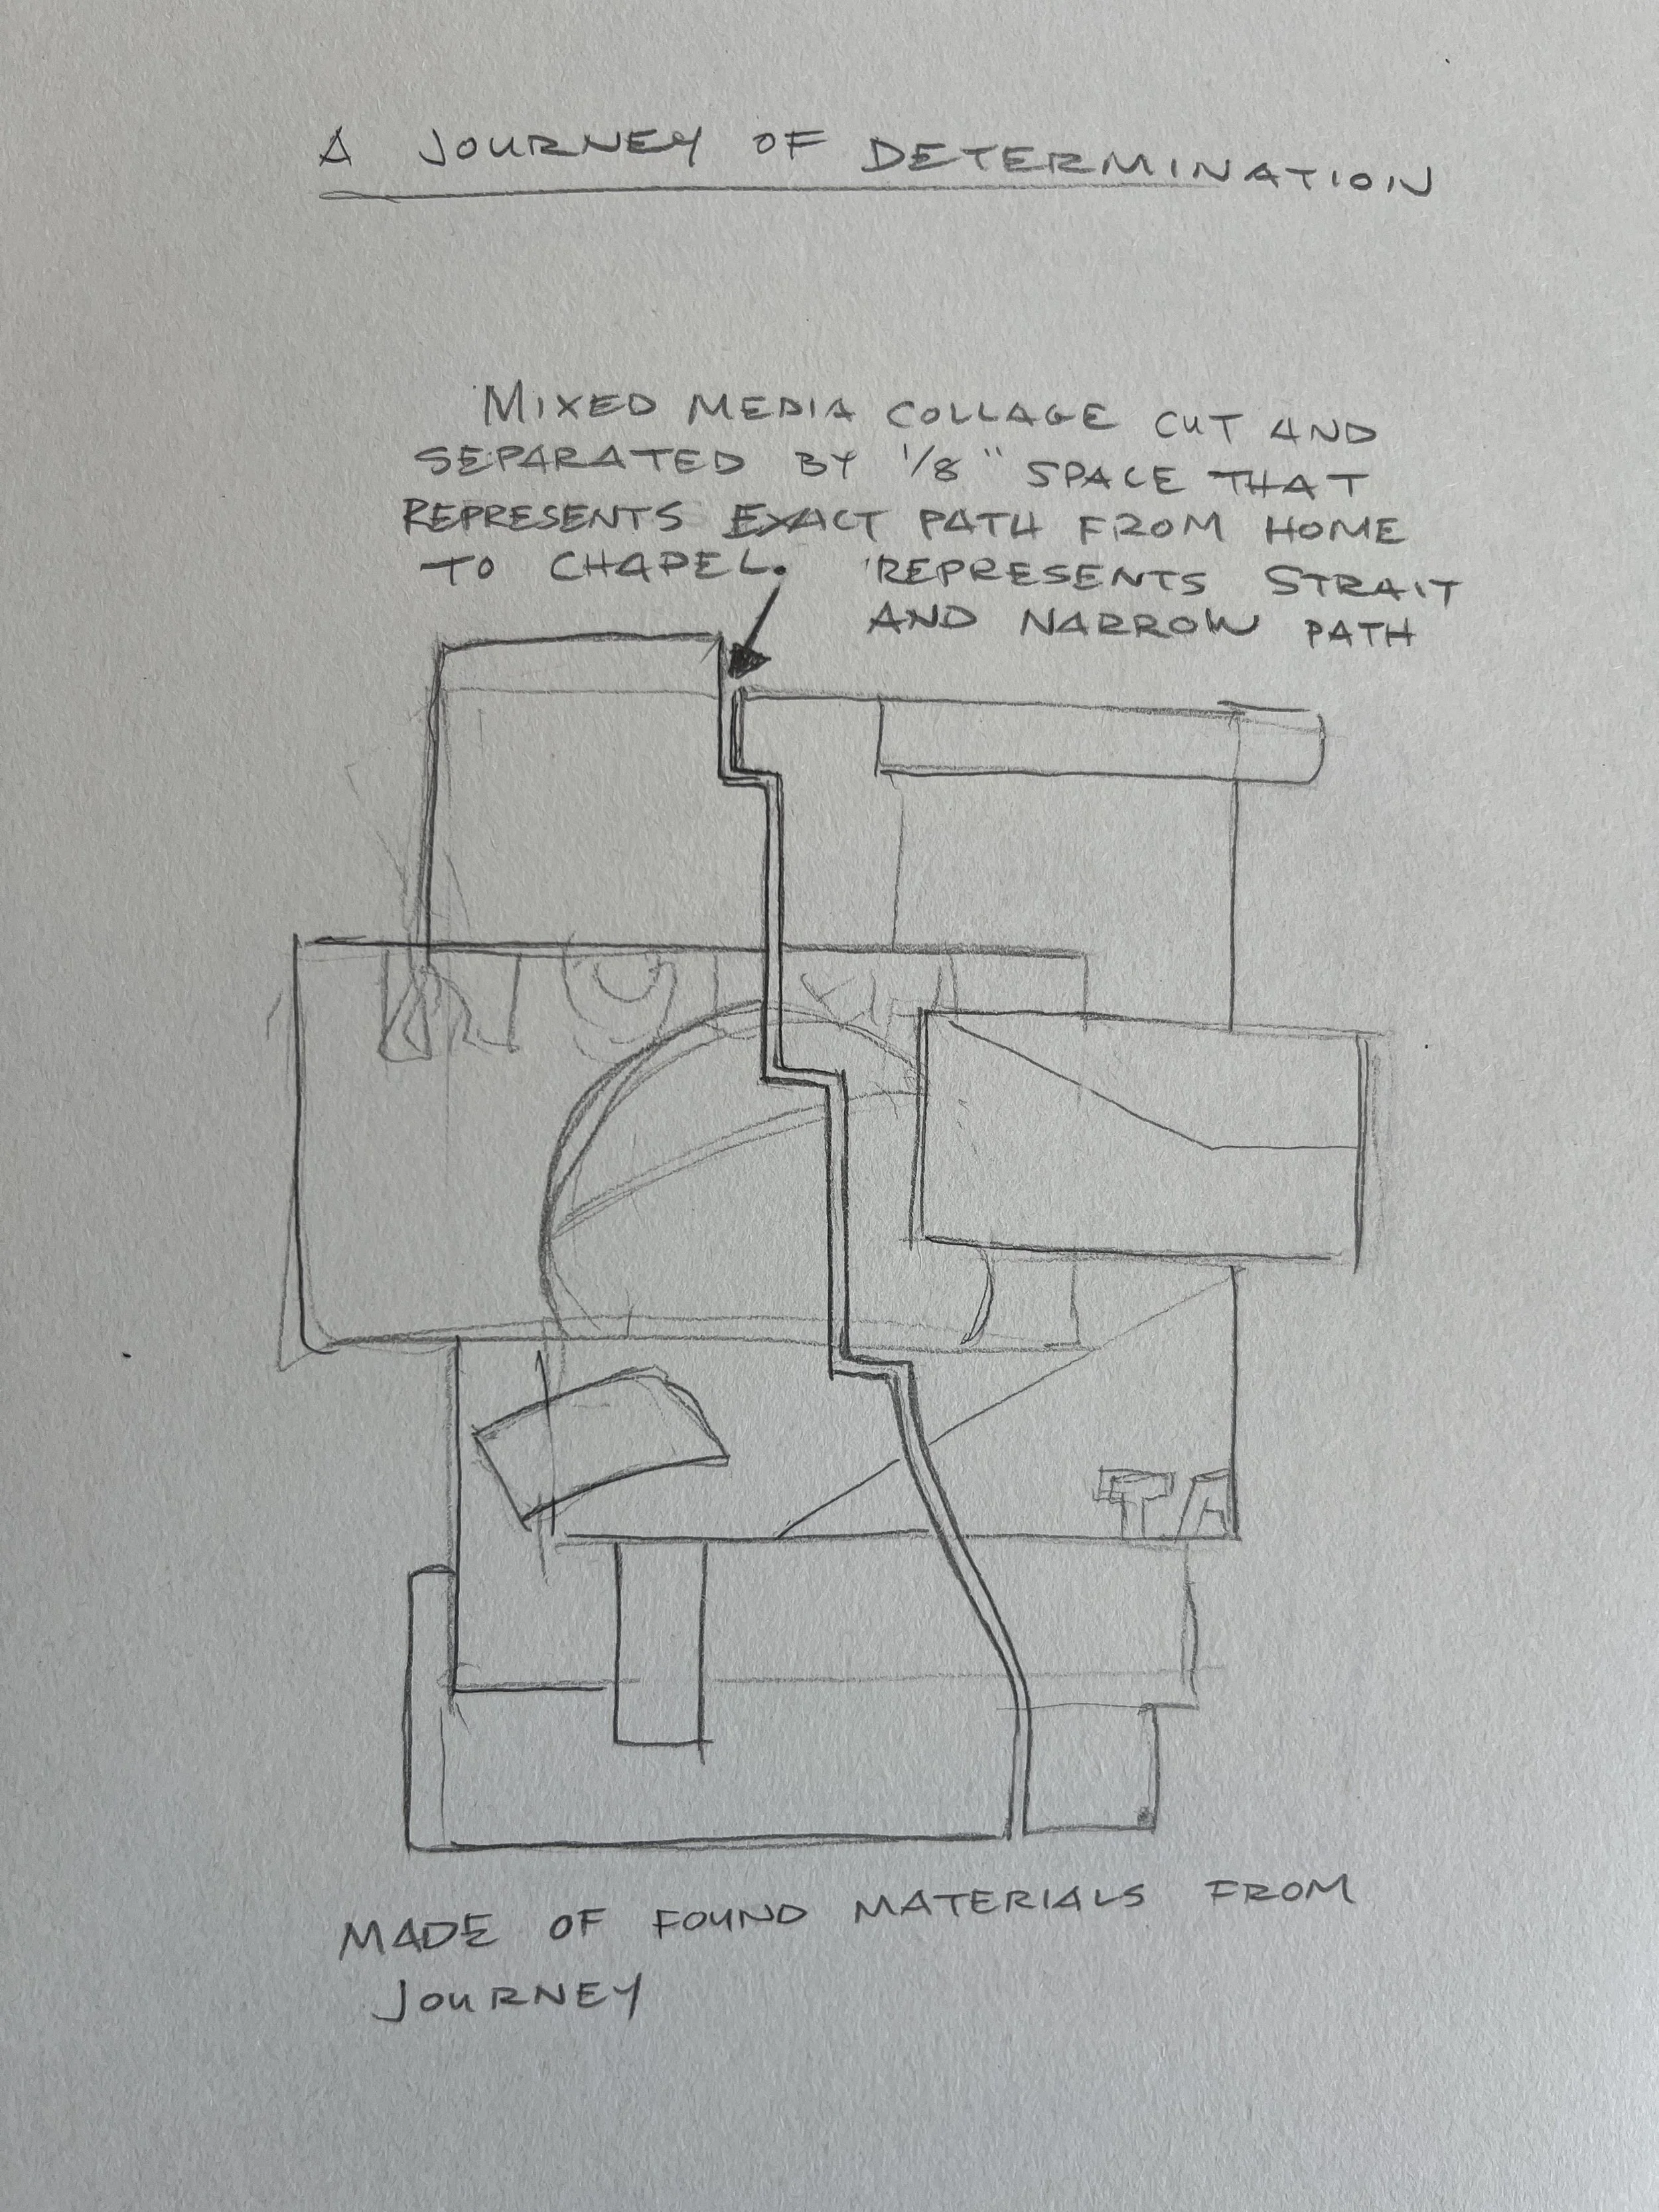 A JOURNEY OF DETERMINATION
MIXED MEDIA COLLAGE CUT AND
SEPARATED BY 1/8" SPACE THAT
REPRESENTS EXACT PATH FROM HOME
TO CHAPEL. REPRESENTS STRAIT
AND NARROW PATH
MADE OF FOUND MATERIALS FROM
JOURNEY